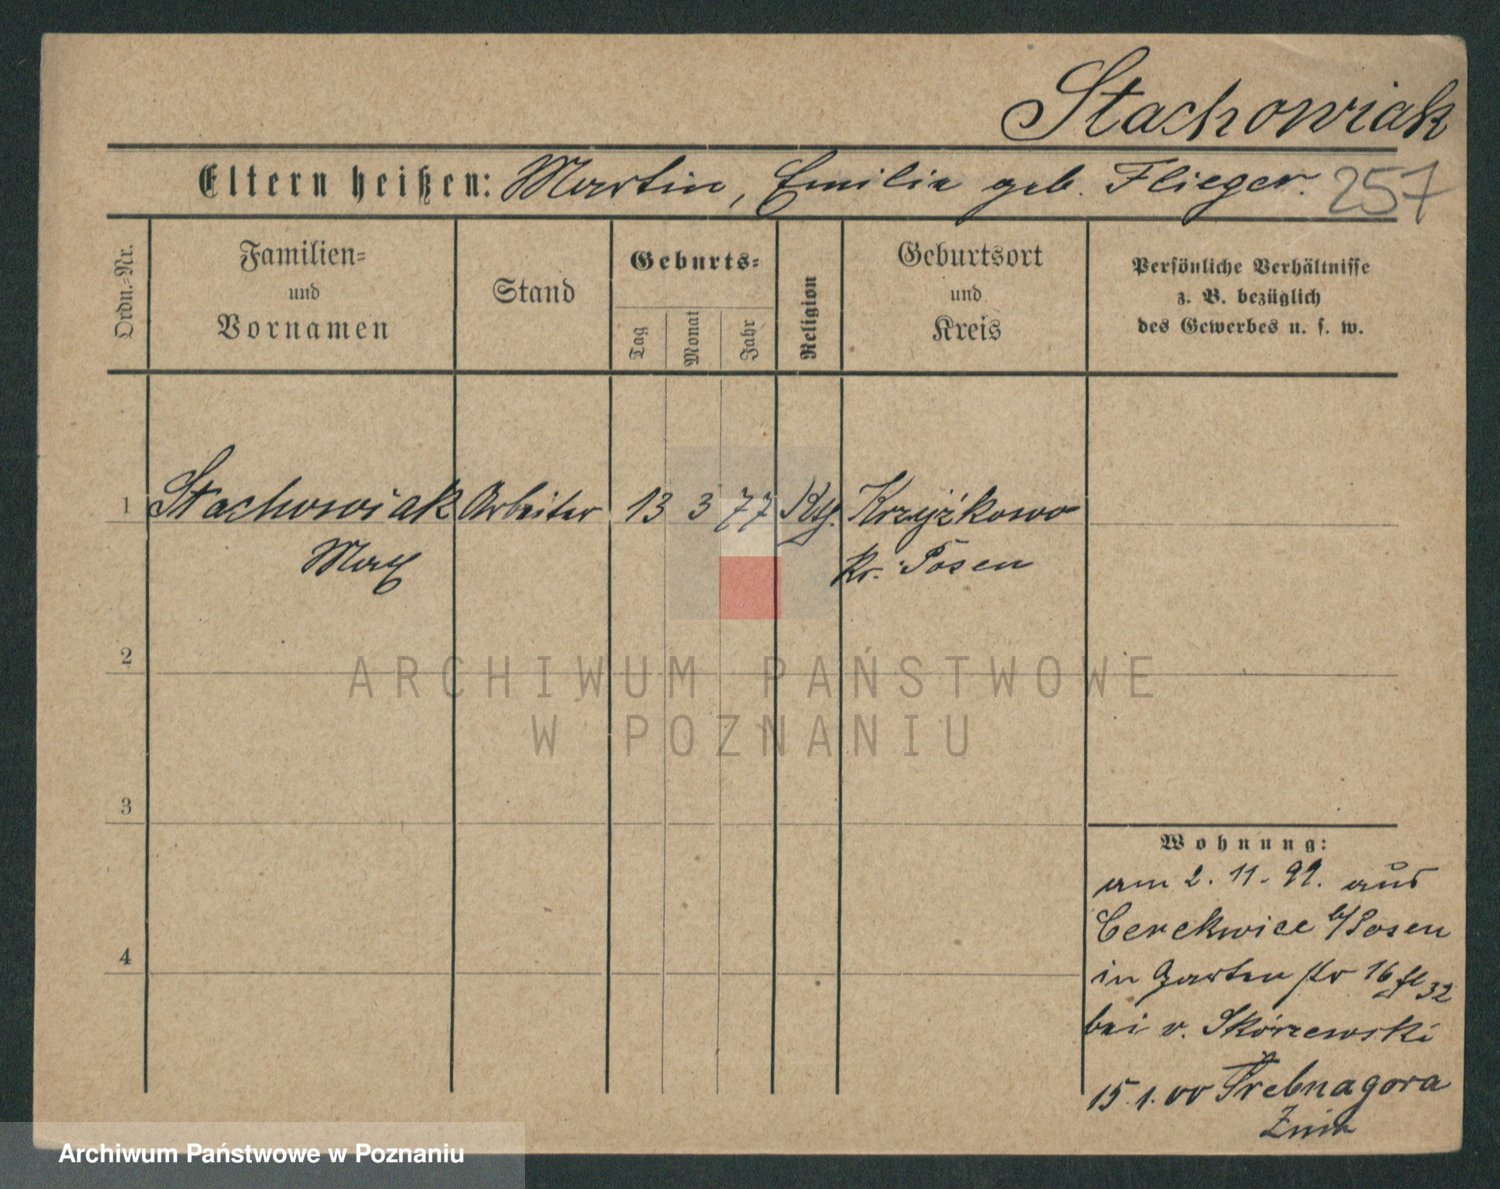 Stachowiak
Eltern heißen: Martin, Emilie geb. Flieger.
257
Ordn.-Nr.
Familien-
und
Vornamen
Stand
Geburts-
Tag
Monat
Jahr
Religion
Geburtsort
und
Kreis
Persönliche Verhältnisse
z. B. bezüglich
des Gewerbes u. s. w.
1 Stachowiak Arbeiter 13 3 77 Krzyżkowo
Max Kr. Posen
2
3
4
ARCHIWUM PAŃSTWOWE
W POZNANIU
Wohnung:
am 2. 11. 99. aus
Cerekwice b/Posen
in Garten str 16
bei v. Skórzewski
15.1.00 Trebnagora
Znin
Archiwum Państwowe w Poznaniu